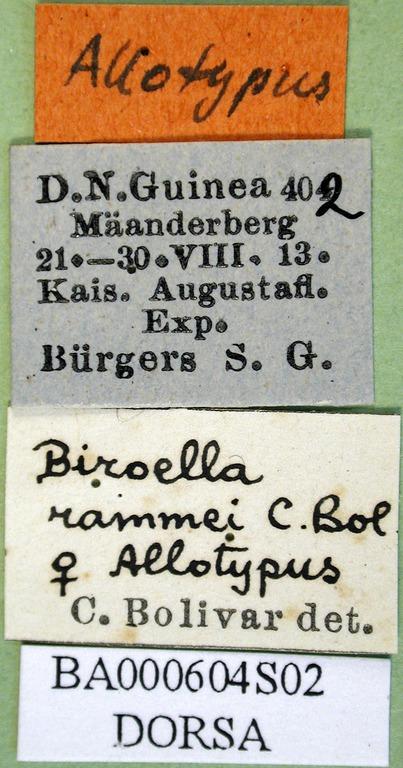 Allotypus
D.N.Guinea 402
Mäanderberg
21.—30.VIII. 13.
Kais. Augustafl.
Exp.
Bürgers S. G.
Biroella
rammei C. Bol.
♀ Allotypus
C. Bolivar det.
BA000604S02
DORSA